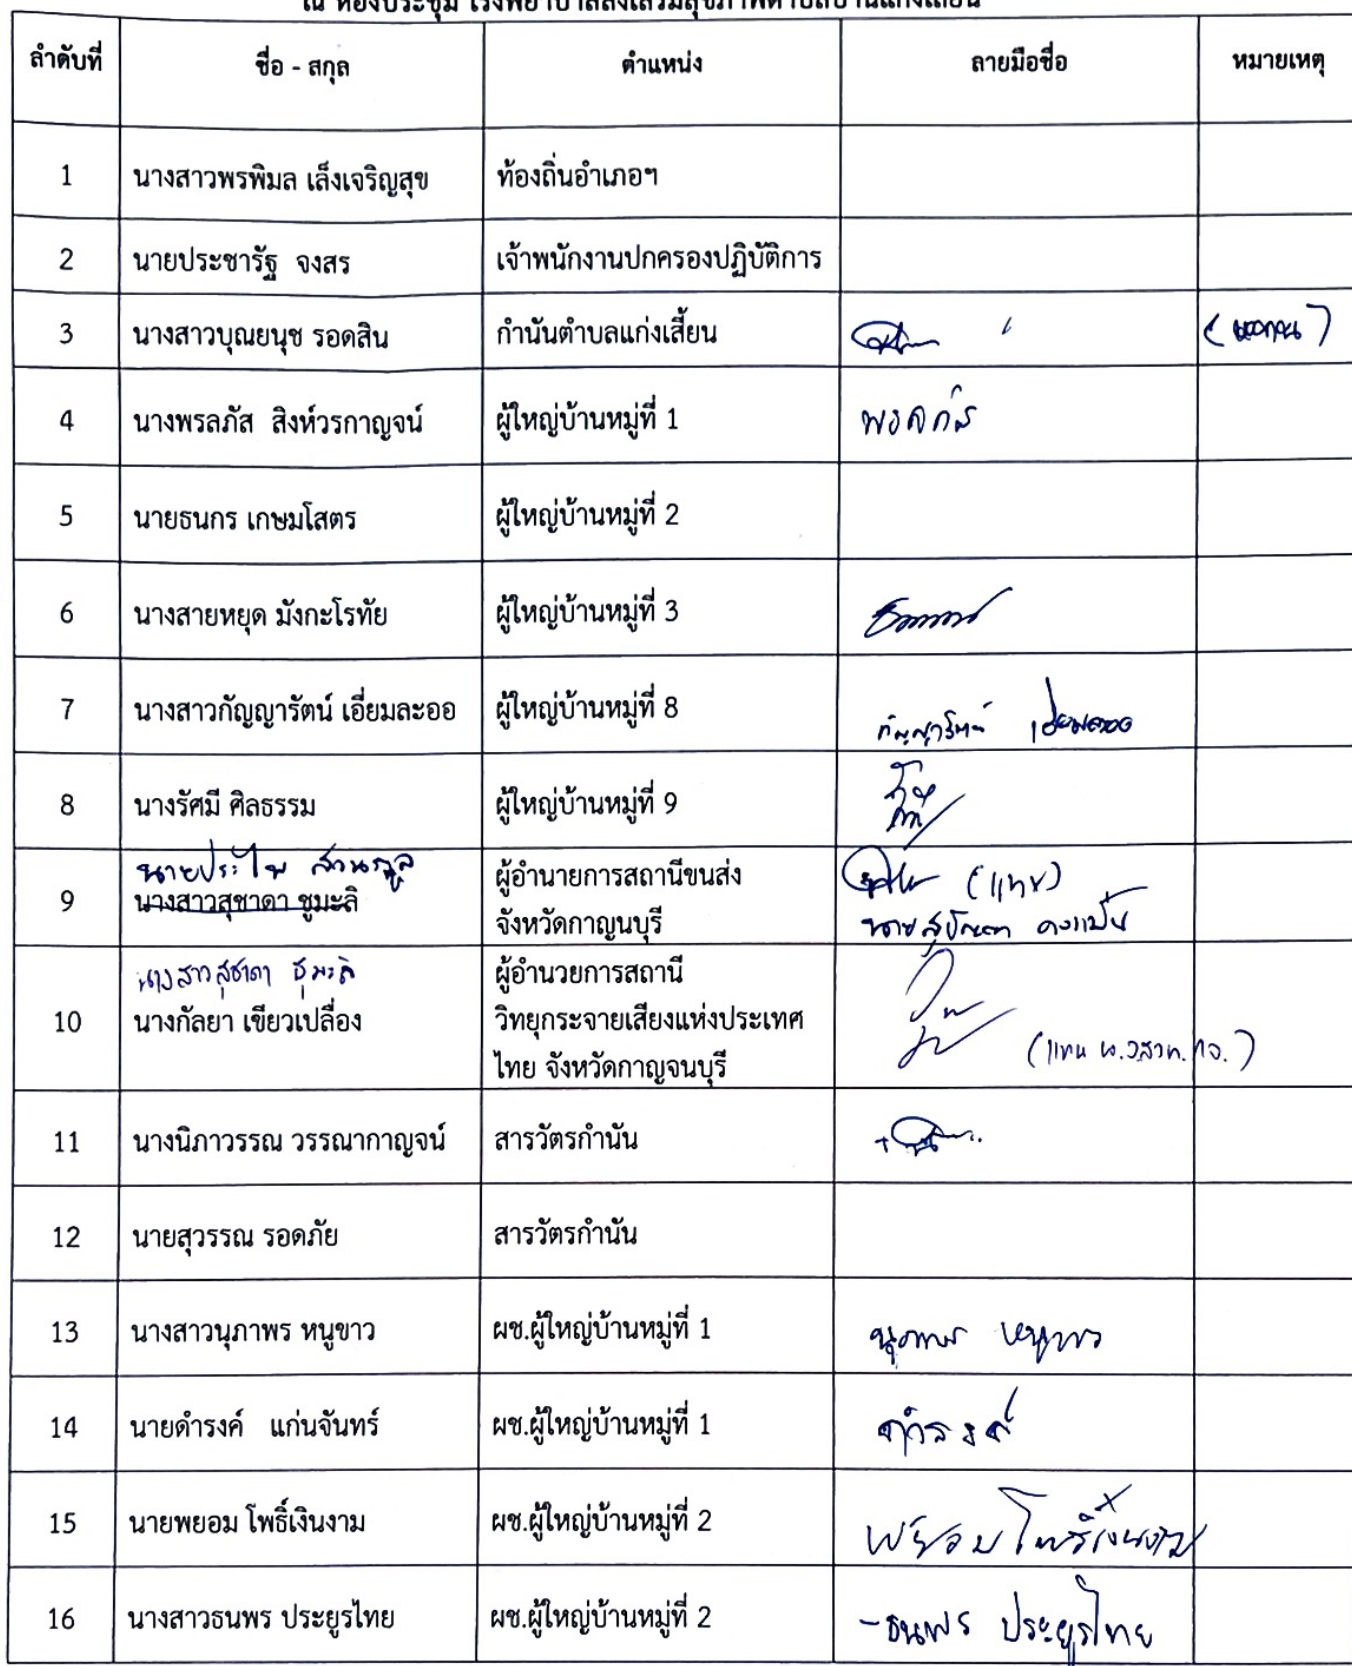 ณ ห้องประชุม โรงพยาบาลส่งเสริมสุขภาพตำบลบ้านแก่งเสี้ยน
ลำดับที่ ชื่อ - สกุล ตำแหน่ง ลายมือชื่อ หมายเหตุ
1 นางสาวพรพิมล เล็งเจริญสุข ท้องถิ่นอำเภอฯ
2 นายประชารัฐ จงสร เจ้าพนักงานปกครองปฏิบัติการ
3 นางสาวบุณยนุช รอดสิน กำนันตำบลแก่งเสี้ยน
4 นางพรลภัส สิงห์วรกาญจน์ ผู้ใหญ่บ้านหมู่ที่ 1 พรลภัส
5 นายธนกร เกษมโสตร ผู้ใหญ่บ้านหมู่ที่ 2
6 นางสายหยุด มังกะโรทัย ผู้ใหญ่บ้านหมู่ที่ 3
7 นางสาวกัญญารัตน์ เอี่ยมละออ ผู้ใหญ่บ้านหมู่ที่ 8 กัญญารัตน์ เอี่ยมละออ
8 นางรัศมี ศิลธรรม ผู้ใหญ่บ้านหมู่ที่ 9
นายประไพ
9 นางสาวสุชาดา ชูมะลิ ผู้อำนายการสถานีขนส่ง (แทน)
จังหวัดกาญนบุรี นาย
นางสาวสุชาดา ชูมะลิ ผู้อำนวยการสถานี
10 นางกัลยา เขียวเปลื่อง วิทยุกระจายเสียงแห่งประเทศ
ไทย จังหวัดกาญจนบุรี (แทน ผอ.สวท.กจ.)
11 นางนิภาวรรณ วรรณากาญจน์ สารวัตรกำนัน
12 นายสุวรรณ รอดภัย สารวัตรกำนัน
13 นางสาวนุภาพร หนูขาว ผช.ผู้ใหญ่บ้านหมู่ที่ 1 นุภาพร หนูขาว
14 นายดำรงค์ แก่นจันทร์ ผช.ผู้ใหญ่บ้านหมู่ที่ 1 ดำรงค์
15 นายพยอม โพธิ์เงินงาม ผช.ผู้ใหญ่บ้านหมู่ที่ 2 พยอม โพธิ์เงินงาม
16 นางสาวธนพร ประยูรไทย ผช.ผู้ใหญ่บ้านหมู่ที่ 2 ธนพร ประยูรไทย